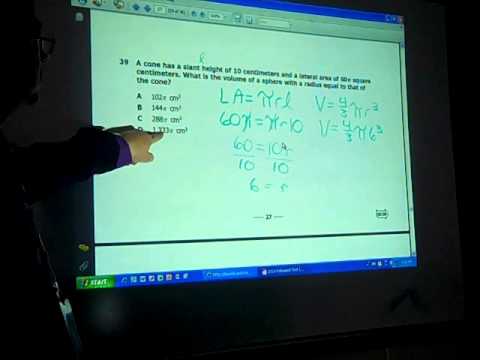 l
39 A cone has a slant height of 10 centimeters and a lateral area of 60π square
centimeters. What is the volume of a sphere with a radius equal to that of
the cone?
A 102π cm³
B 144π cm³
C 288π cm³
D 1,333π cm³
LA = πrl
60π = πr10
60 = 10r
10 10
6 = r
V = 4/3 πr³
V = 4/3 π6³
— 27 —
start